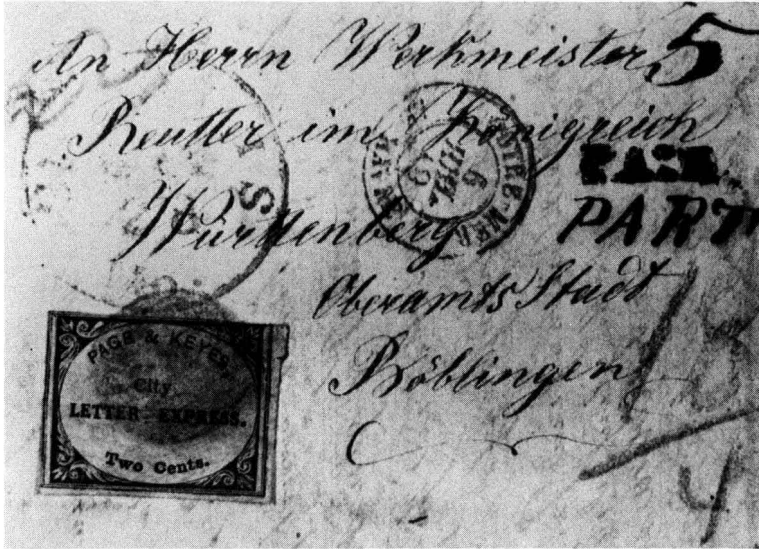 An Herrn Werkmeister 5
Reutter im Königreich
PAID
PART
Würdenberg
S
Oberamts Stadt
Böblingen
18
4
PAGE & KEYES,
City
LETTER EXPRESS.
Two Cents.